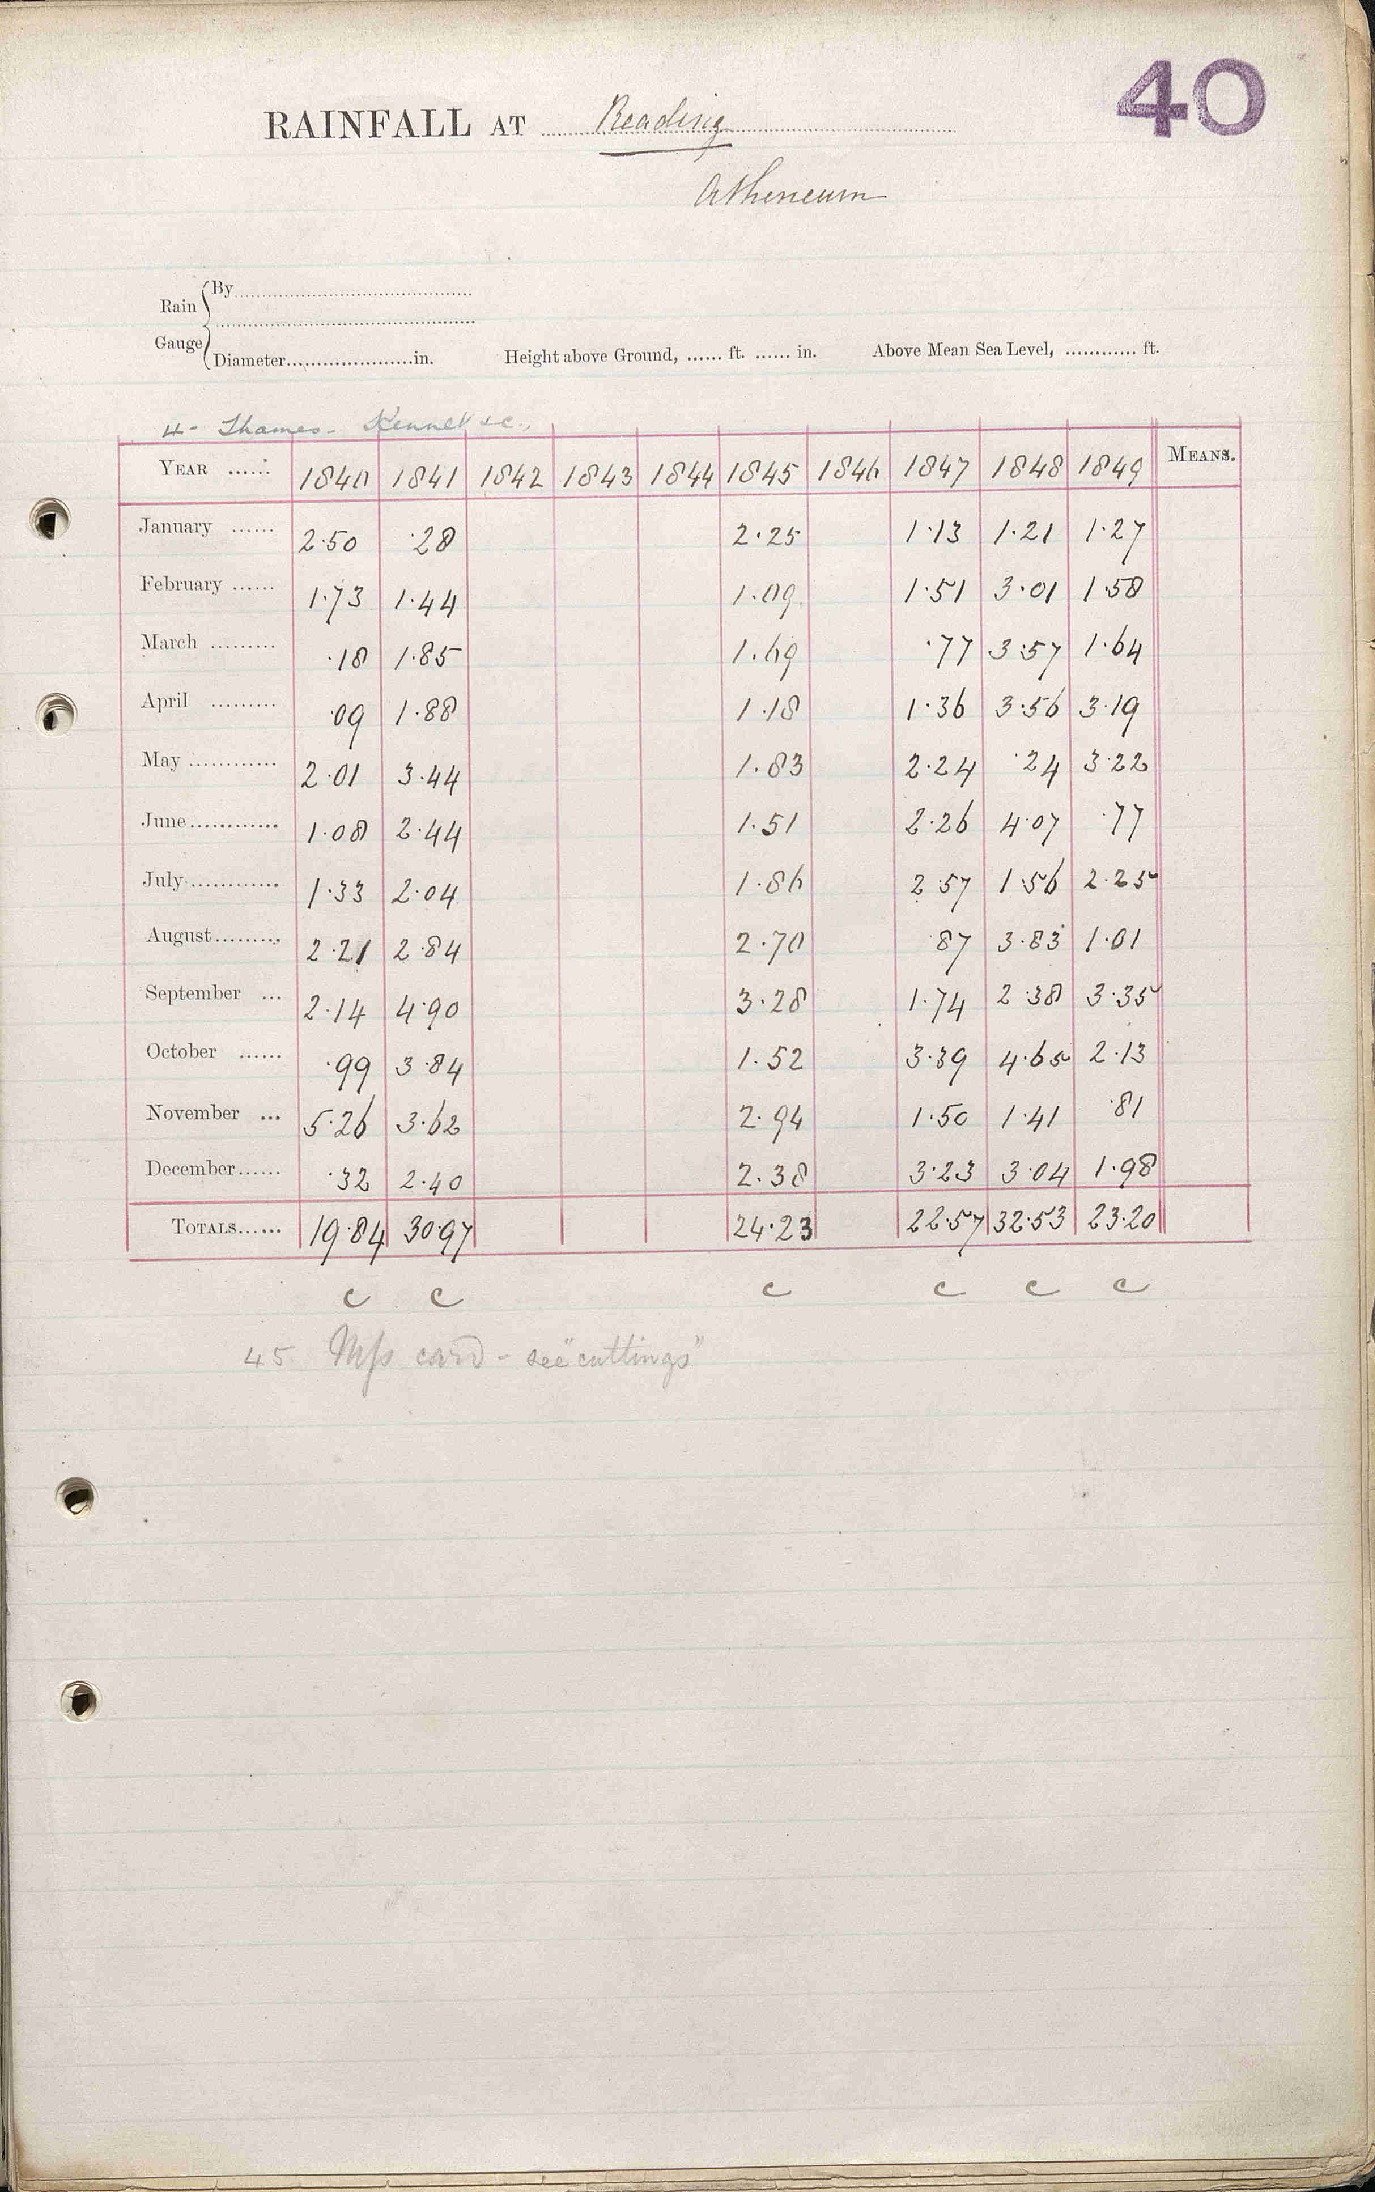 40
RAINFALL AT Reading
Atheneum
Rain Gauge { By
Diameter.....................in. Height above Ground, ...... ft. ...... in. Above Mean Sea Level, ............ ft.
4 - Thames - Kennet &c.,
YEAR ...... 1840 1841 1842 1843 1844 1845 1846 1847 1848 1849 MEANS.
January ...... 2·50 ·28 2·25 1·13 1·21 1·27
February ...... 1·73 1·44 1·09 1·51 3·01 1·58
March ......... ·18 1·85 1·69 ·77 3·57 1·64
April ......... ·09 1·88 1·18 1·36 3·56 3·19
May ............ 2·01 3·44 1·83 2·24 ·24 3·22
June............ 1·08 2·44 1·51 2·26 4·07 ·77
July............ 1·33 2·04 1·86 2·57 1·56 2·25
August......... 2·21 2·84 2·70 ·87 3·83 1·01
September ... 2·14 4·90 3·28 1·74 2·38 3·35
October ...... ·99 3·84 1·52 3·39 4·65 2·13
November ... 5·26 3·62 2·94 1·50 1·41 ·81
December...... ·32 2·40 2·38 3·23 3·04 1·98
TOTALS...... 19·84 30·97 24·23 22·57 32·53 23·20
c c c c c c
45 Mss card - see "cuttings"